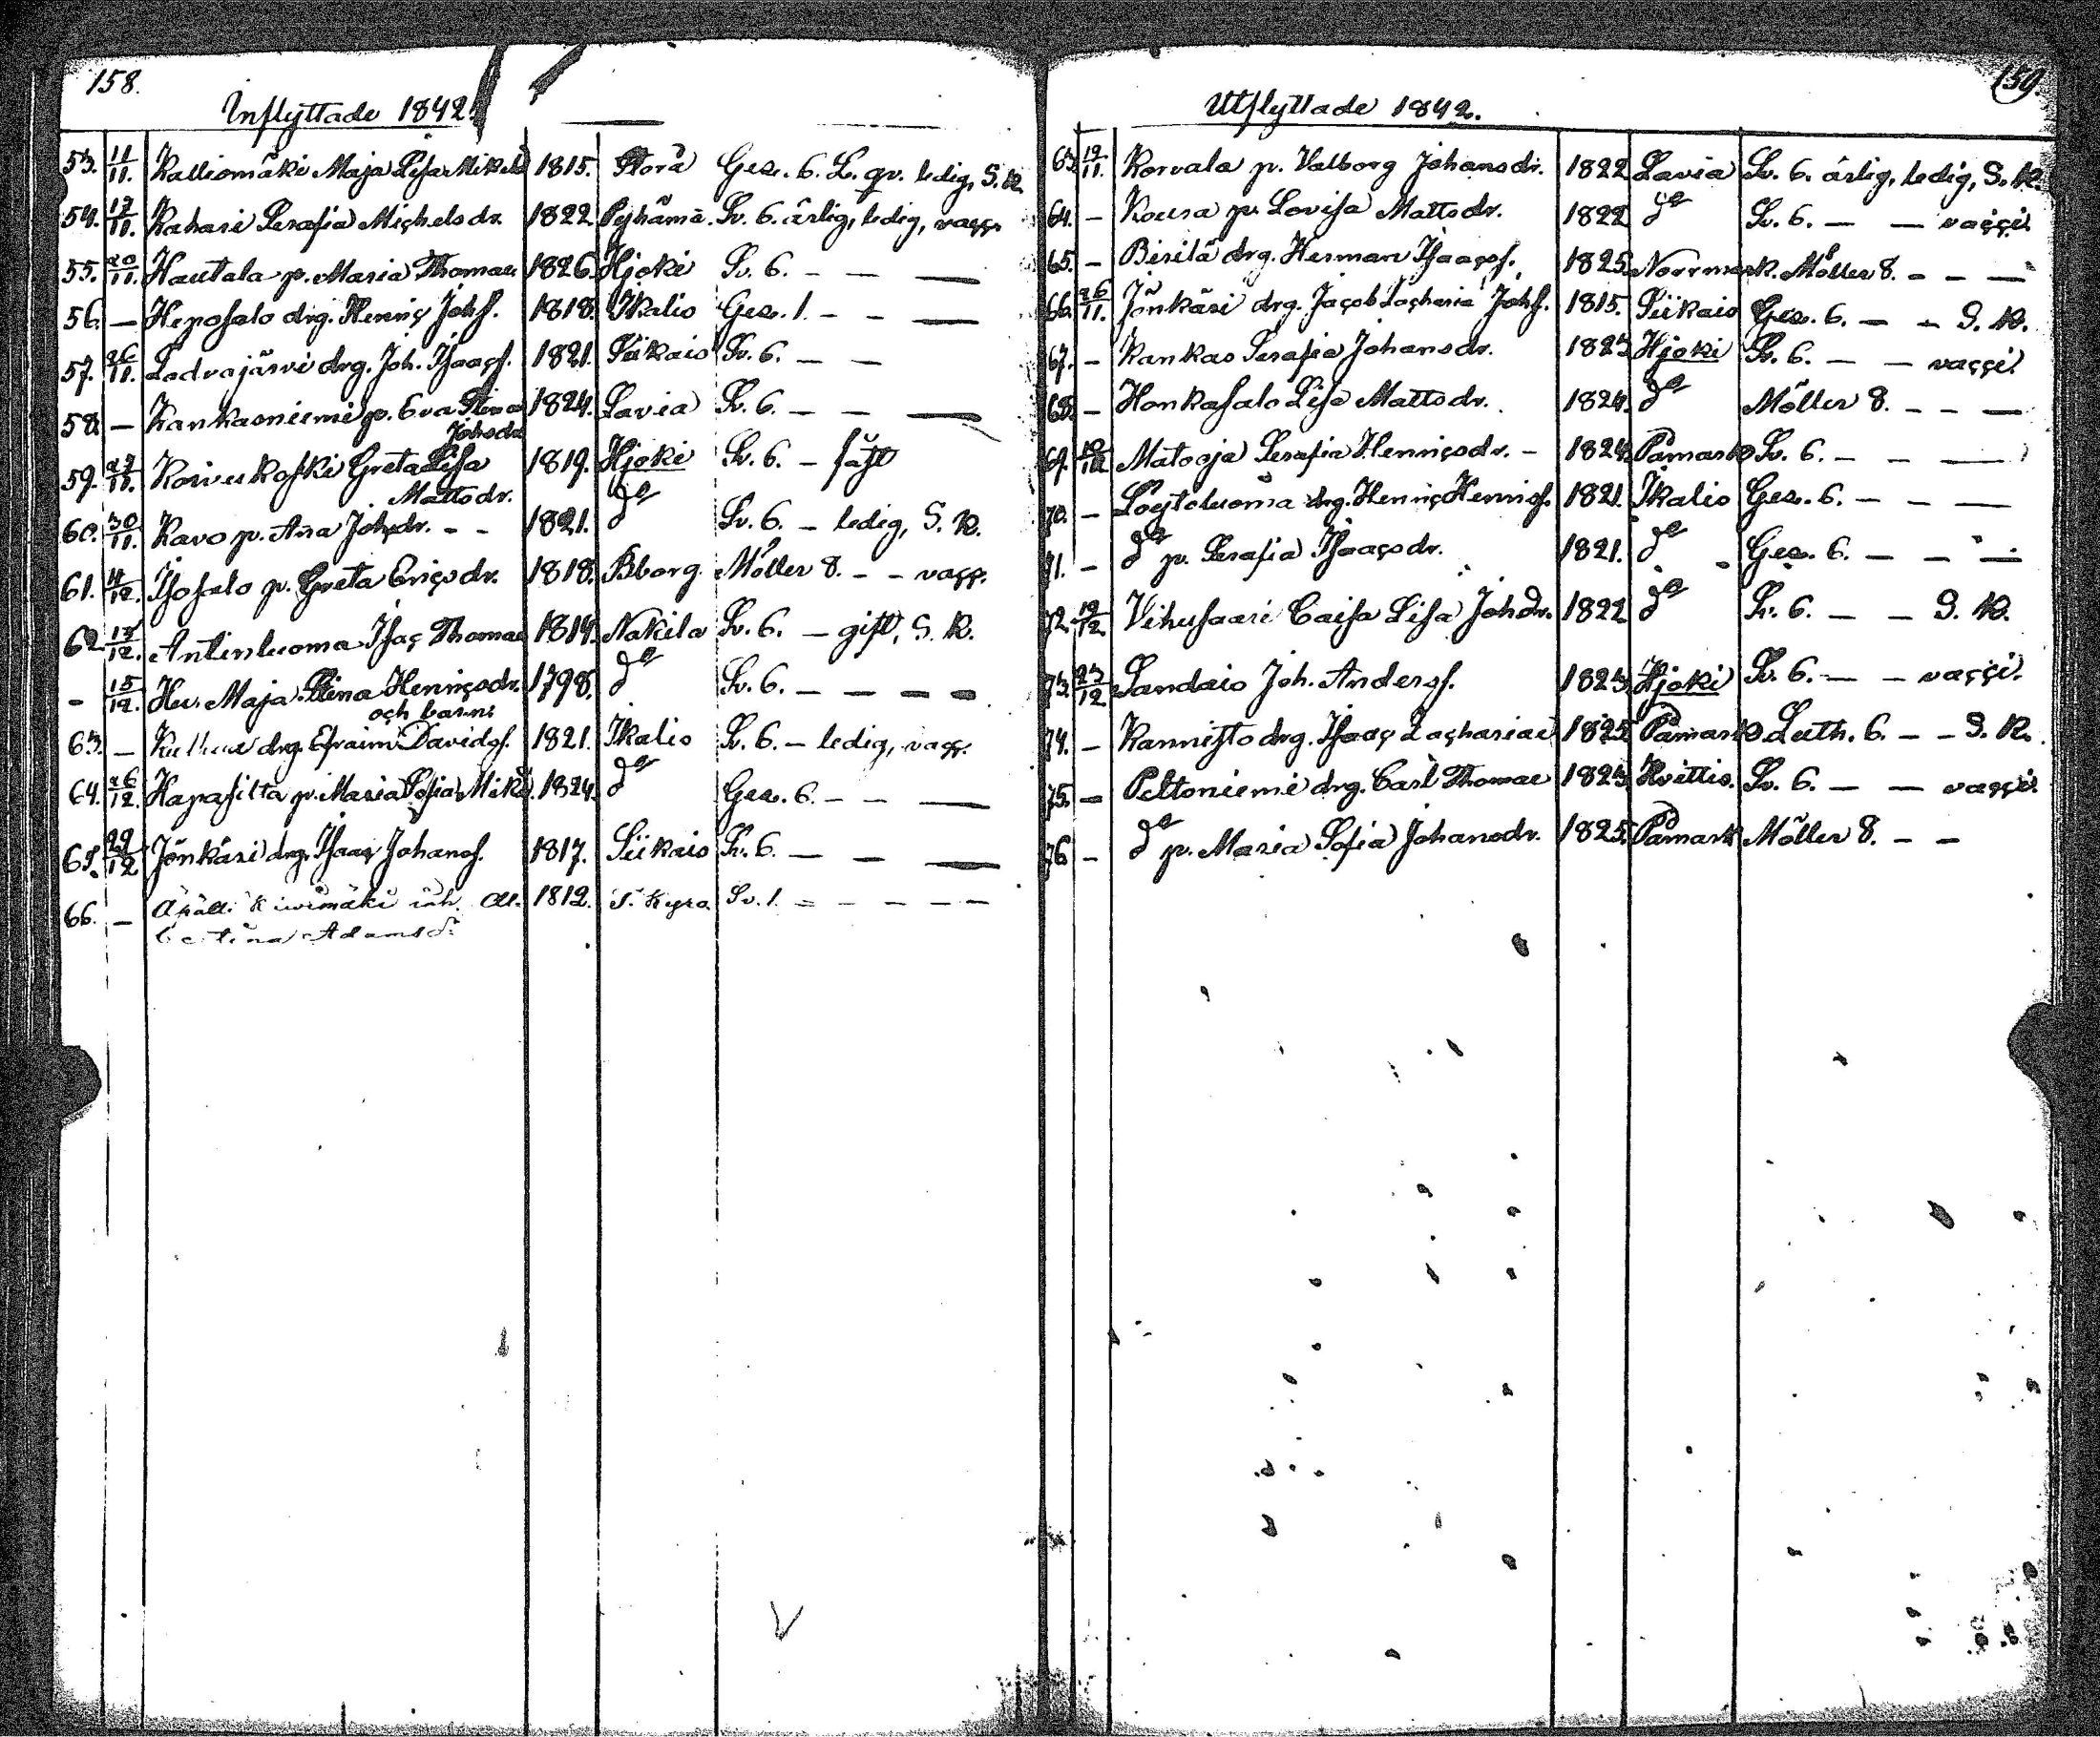 158.
Inflyttade 1842.
53. 11/11. Kalliomäki Maja Lisa Mikelsd 1815. Storå Gez. 6. L. qv. ledig, S. N.
54. 17/11. Rahari Serafia Michelsdr. 1822 Pyhämä. Sv. 6. ärlig, ledig, vacc.
55. 20/11. Hautala p. Maria Thomae 1826. Hjoki Sv. 6. - - —
56. — Heposalo drg. Henric Johs. 1818. Ikalis Gez. 1. - - —
57. 26/11. Ladvajärvi drg. Joh. Isaacs. 1821. Siikais Sv. 6. — —
58. — Kankasniemi p. Eva Stina 1824. Lavia Sv. 6. — — —
Johsdr
59. 27/11. Koivukoski Greta Lisa 1819. Hjoki Sv. 6. — fäst
Mattsdr.
60. 30/11. Ravo p. Ana Johsdr. - - 1821. do Sv. 6. — ledig, S. N.
61. 4/12. Isosalo p. Greta Ericsdr. 1818. Bborg. Möller 8. - - vacc.
62. 13/12. Antinluoma Isac Thomae 1814. Nakila Sv. 6. — gift, S. N.
- 15/12. Hu. Maja Stina Henricsdr. 1798. do Sv. 6. — — — —
och barn:
63. — drg. Efraim Davids. 1821. Ikalis Sv. 6. — ledig, vacc.
64. 26/12. Hapasilta p. Maria Sofia Miksd. 1824. do Gez. 6. — — —
65. 29/12 Jönkäri drg. Isaac Johans. 1817. Siikais Sv. 6. — — —
66. — Kivimäki inh. 1812. S. Kyro. Sv. 1. = — — — —
Adamsd:
159.
Utflyttade 1842.
63. 12/11. Korvala p. Valborg Johansdr. 1822 Lavia Sv. 6. ärlig, ledig, S. N.
64. — Koura p. Lovisa Mattsdr. 1822 do Sv. 6. — — vacci.
65. — Birilä drg. Herman Isaacs. 1825. Norrmark. Möller 8. - - —
66. 26/11. Jönkäri drg. Jacob Zacharia Johs. 1815. Siikais Gez. 6. — - S. N.
67. — Kankas Serafia Johansdr. 1823 Hjoki Sv. 6. — — vacci.
68. — Honkasalo Lisa Mattsdr. 1824. do Möller 8. - - —
69. 10/12 Matooja Serafia Henricsdr. — 1824. Påmark Sv. 6. — - —
70. — Löytoluoma drg. Henric Henrics. 1821. Ikalis Gez. 6. — - —
71. — do p. Serafia Isaacsdr. 1821. do Gez. 6. — - —
72. 12/12. Vihusaari Caisa Lisa Johdr. 1822 do Sv. 6. — — S. N.
73. 23/12 Sandais Joh. Anders. 1823. Hjoki Sv. 6. — — vacci.
74. — Kannisto drg. Isaac Zachariae 1825. Påmark Luth. 6. — — S. N.
75. — Peltoniemi drg. Carl Thomae 1823. Hvittis. Sv. 6. — — vacci.
76 — do p. Maria Sofia Johansdr. 1825. Påmark Möller 8. - -